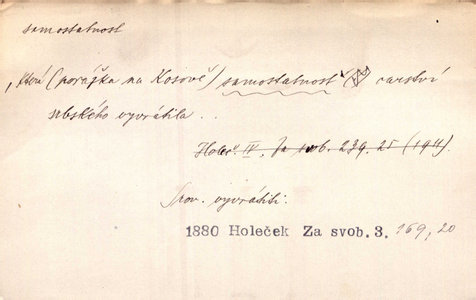 samostatnost
„která (porážka na Kosově) samostatnost carství
srbského vyvrátila..
Holeč. IV, Za svob. 239, 25 (1911).
Srov. vyvrátiti.
1880 Holeček Za svob. 3. 169, 20